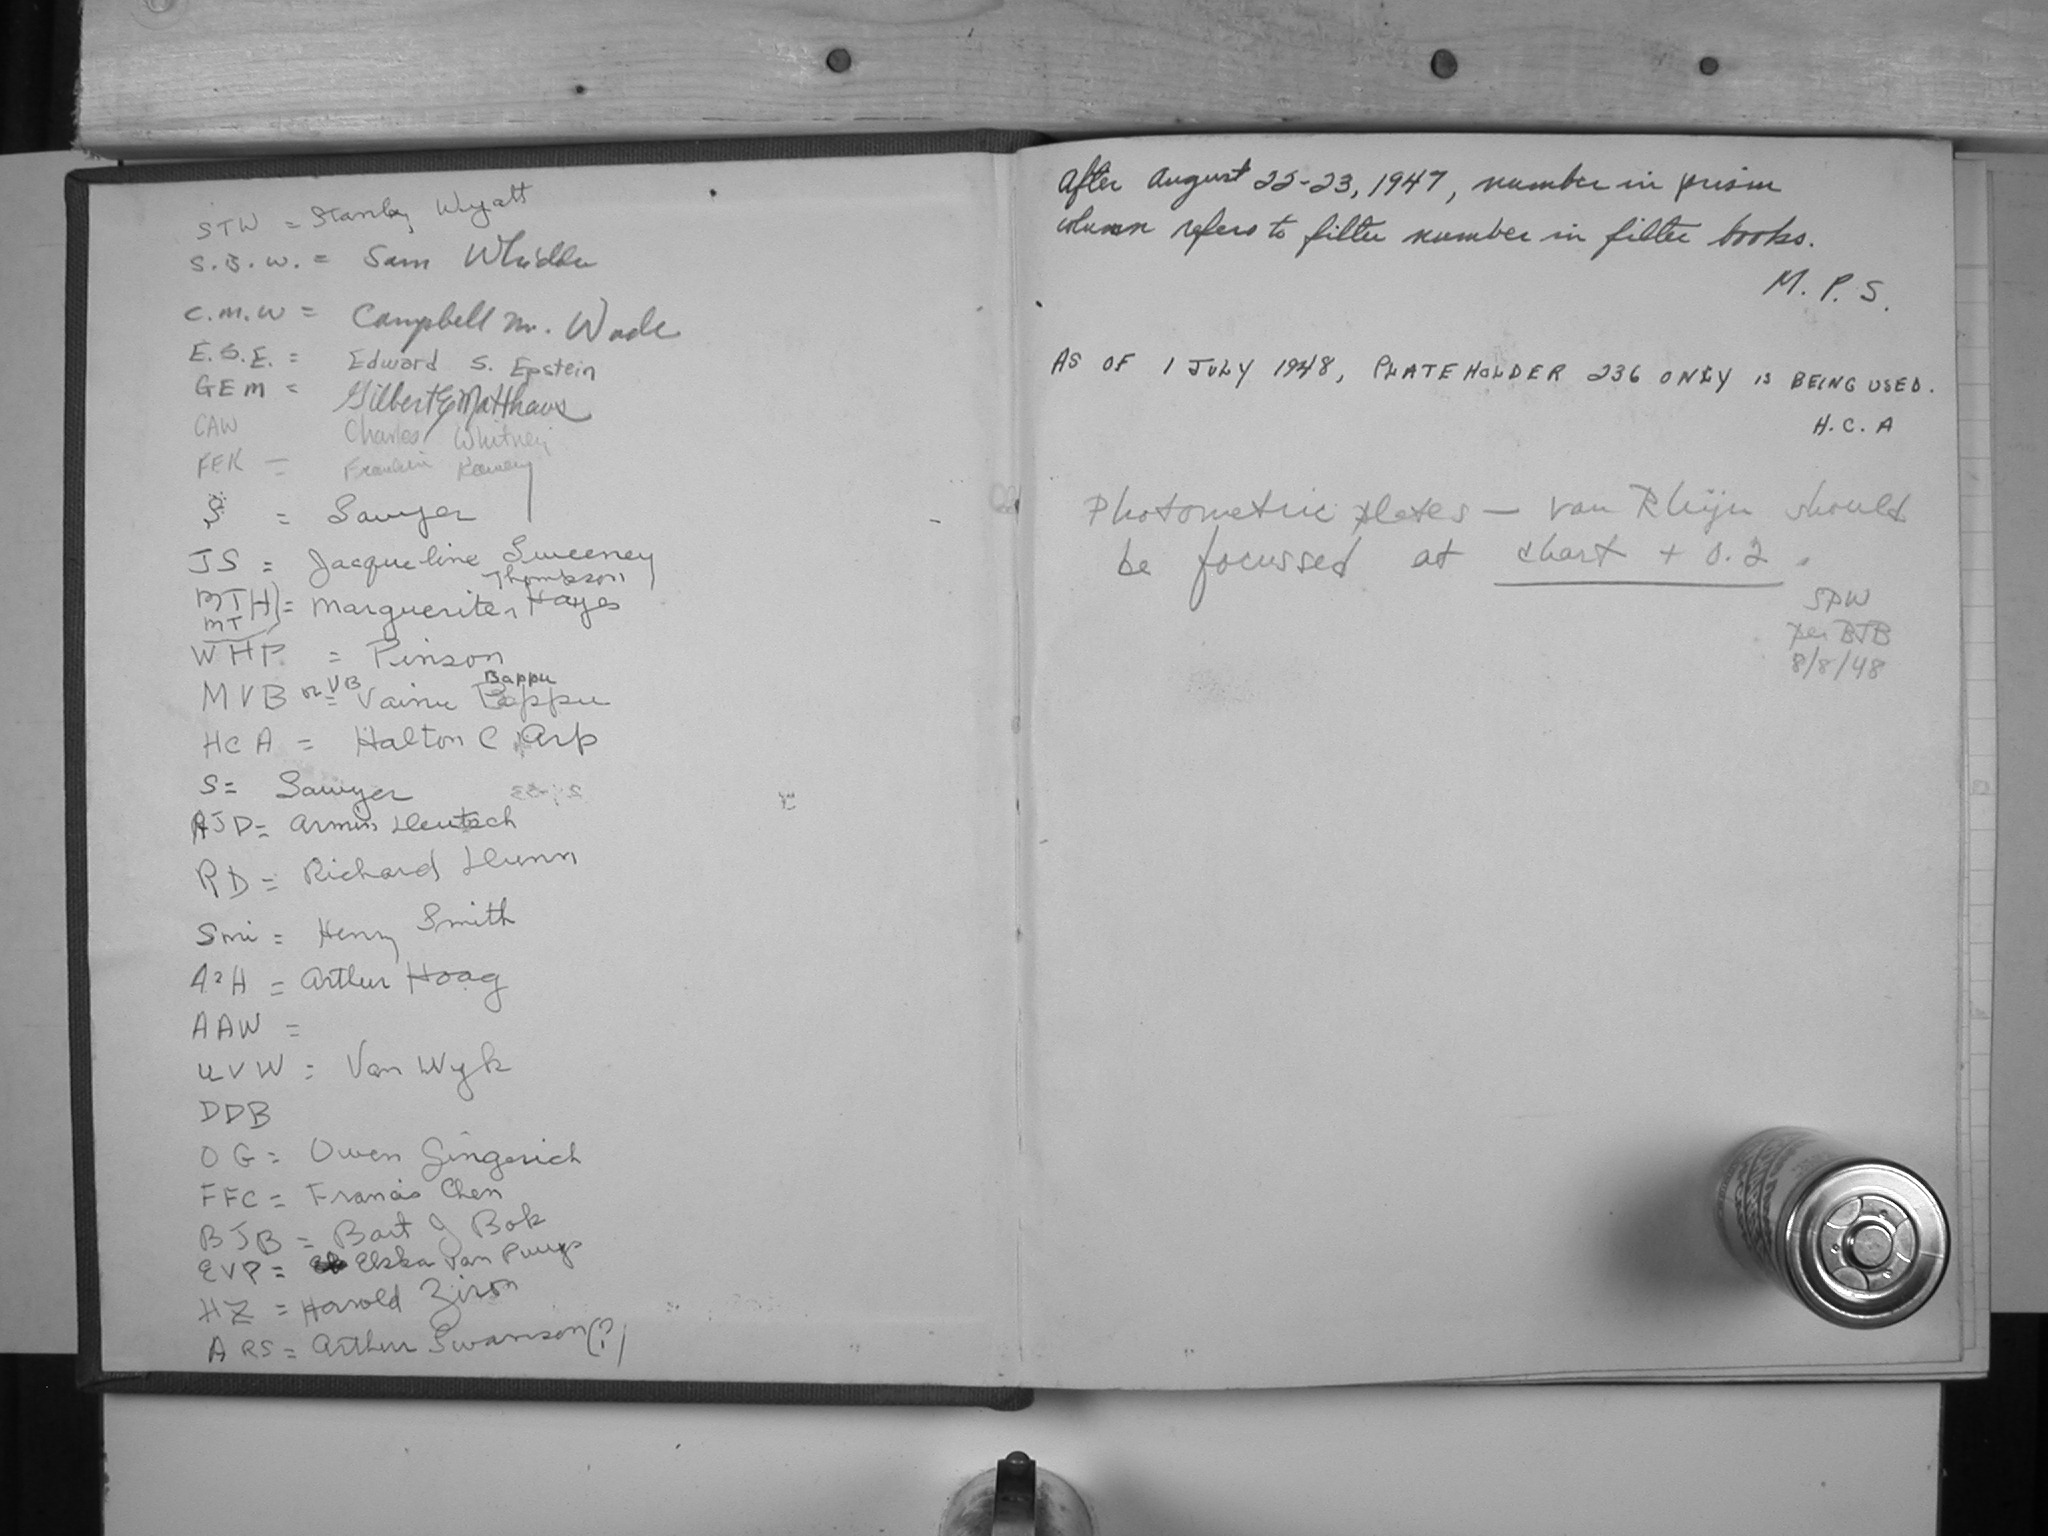 STW = Stanley Wyatt
S.B.W. = Sam Whidden
C.M.W = Campbell M. Wade
E.S.E. = Edward S. Epstein
GEM = Gilbert E Matthews
CAW Charles Whitney
FEK = Franklin Kameny
S = Sawyer
JS = Jacqueline Sweeney
Thompson
MTH) = Marguerite Hayes
MT
WHP = Pinson
Bappu
MVB or VB = Vainu Bappu
HCA = Halton C Arp
S = Sawyer
AJD = Armin Deutsch
RD = Richard Dunn
Smi = Henry Smith
A2H = Arthur Hoag
AAW =
UVW = Van Wyk
DDB
OG = Owen Gingerich
FFC = Francis Chen
BJB = Bart J Bok
EVP = Elska van
HZ = Harold Zirin
ARS = Arthur Swanson(?)
After August 22-23, 1947, number in prism
column refers to filter number in filter books.
M. P. S.
AS OF 1 JULY 1948, PLATEHOLDER 236 ONLY IS BEING USED.
H. C. A
Photometric plates — van Rhijn should
be focussed at chart + 0.2.
SPW
per BJB
8/8/48